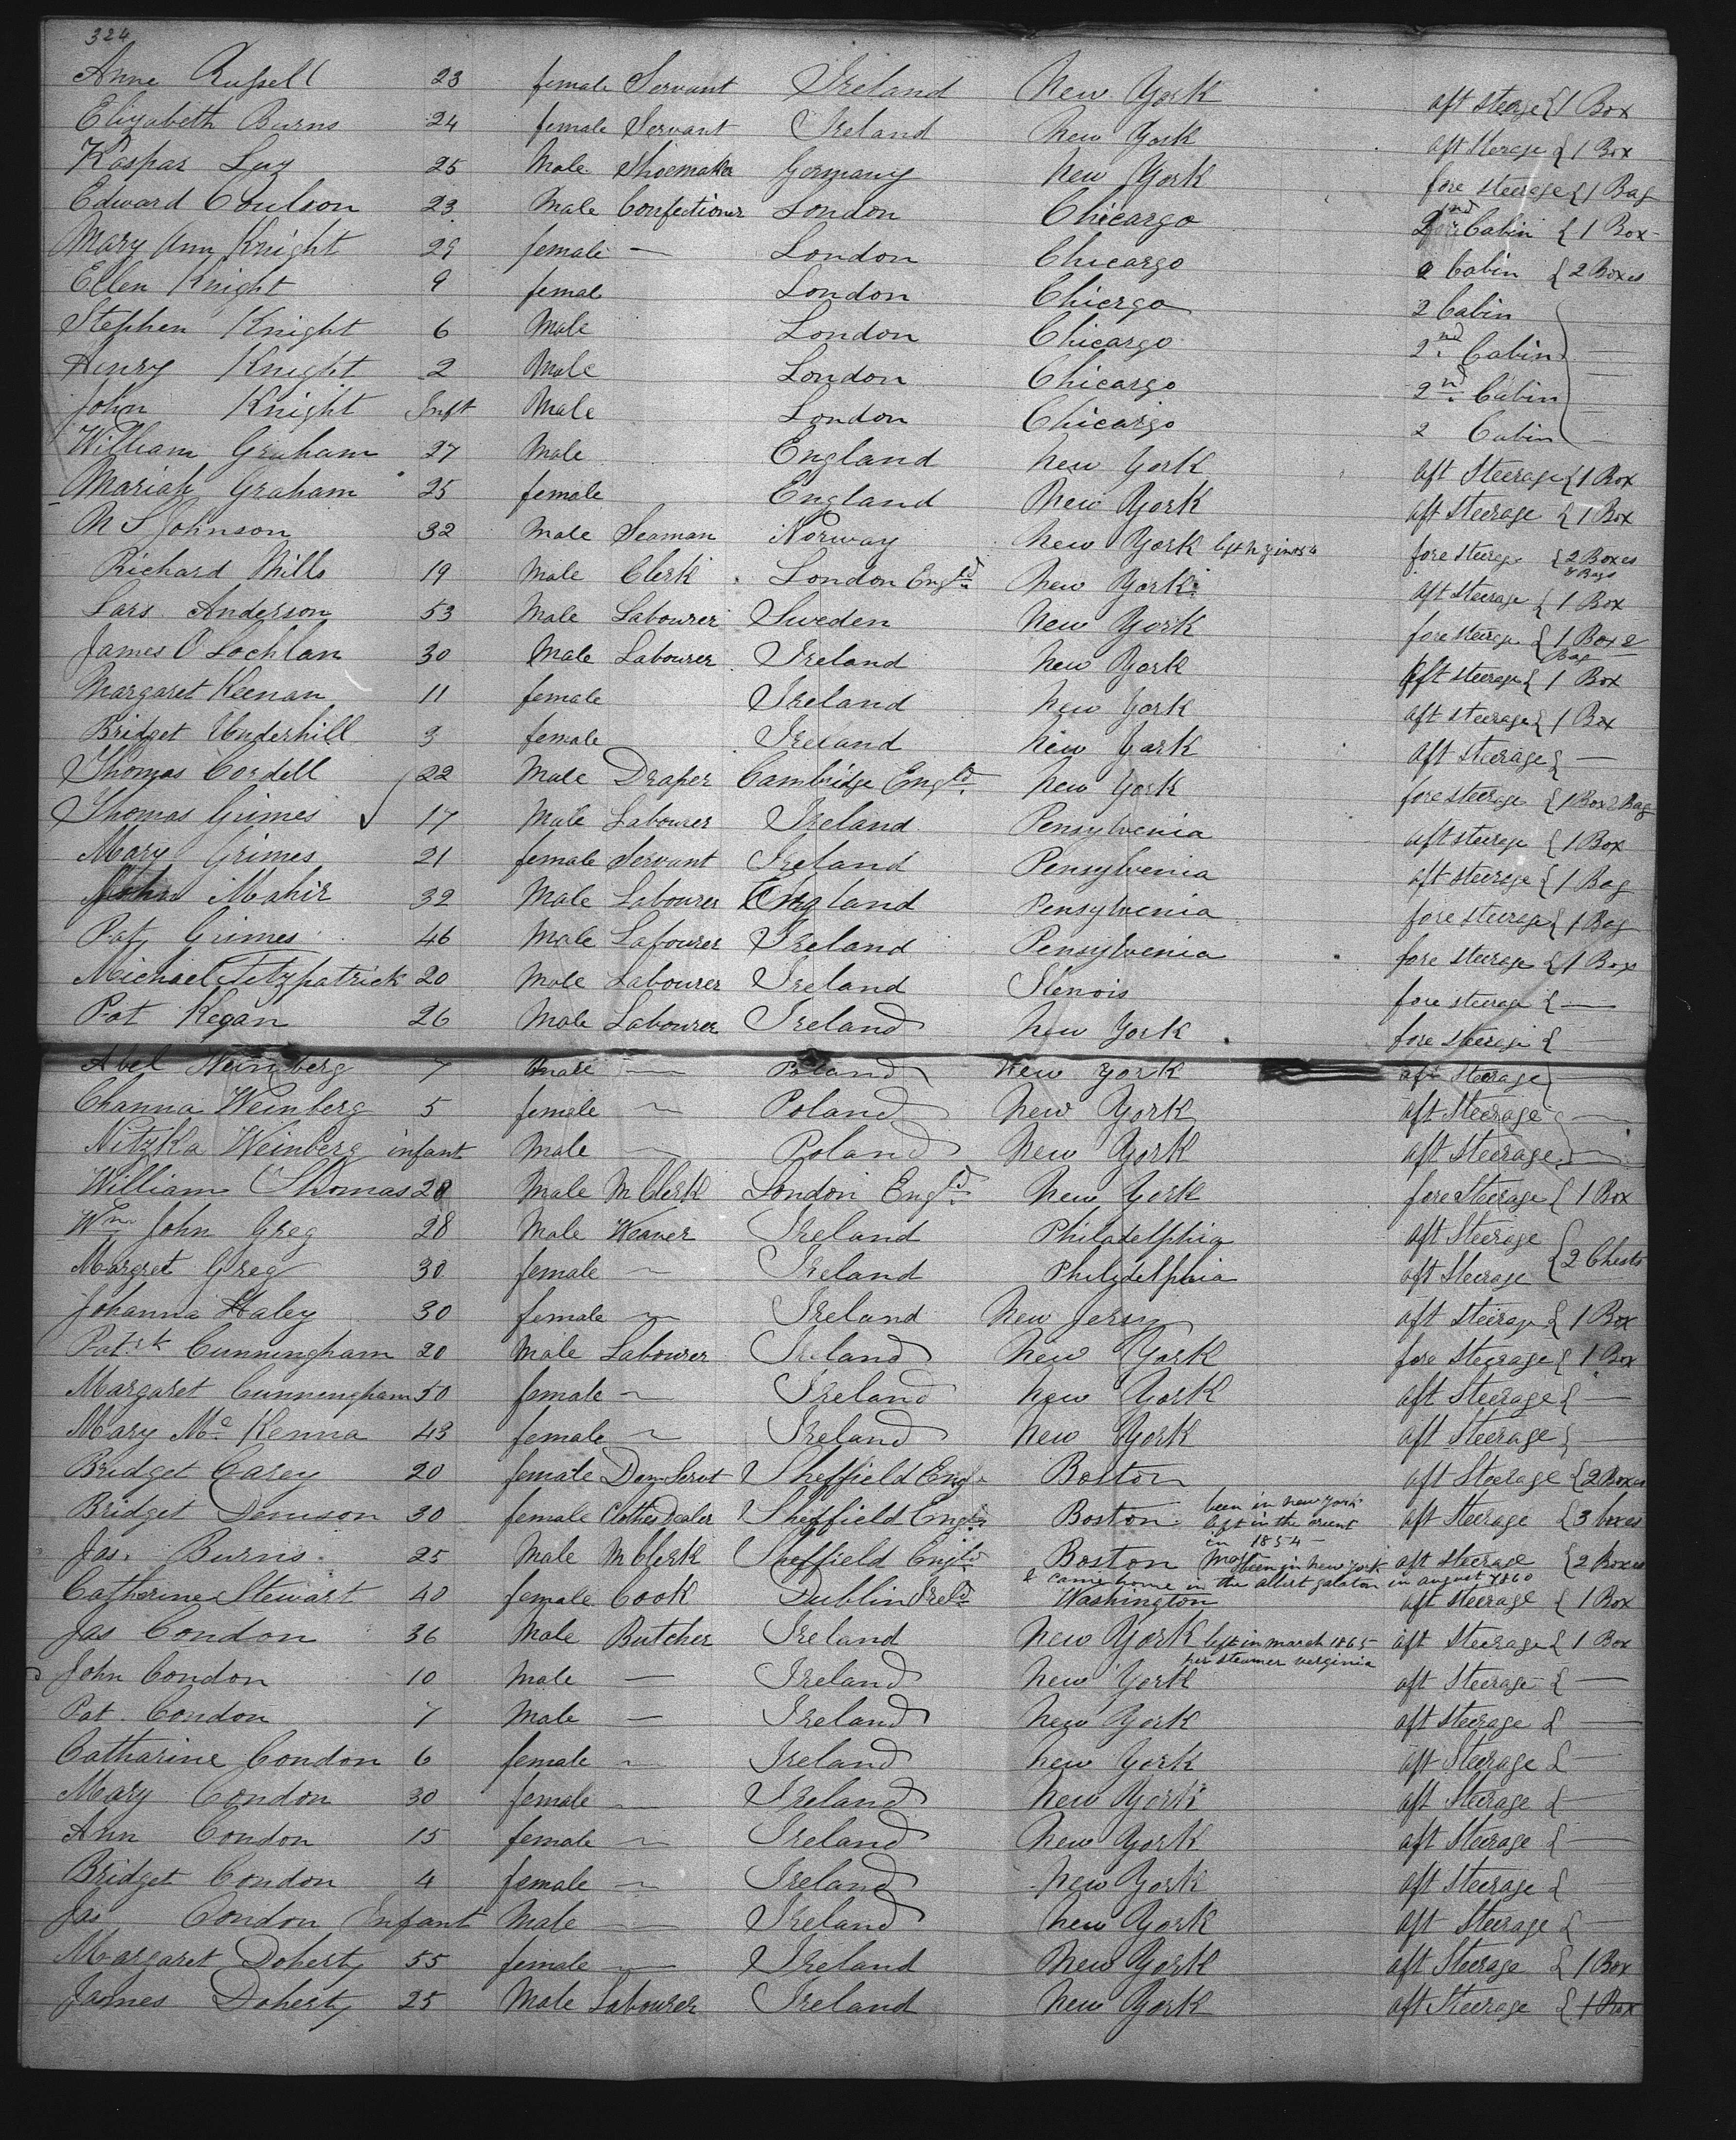 324
Anne Russell 23 female Servant Ireland New York aft Steerage { 1 Box
Elizabeth Burns 24 female Servant Ireland New York aft Sterage { 1 Box
Kaspar Luz 25 Male Shoemaker Germany New York fore steerage { 1 Bag
Edward Coulson 23 Male Confectioner London Chicargo 2nd Cabin { 1 Box
Mary Ann Knight 29 female — London Chicargo 2 Cabin { 2 Boxes
Ellen Knight 9 femal London Chicrgo 2 Cabin
Stephen Knight 6 Male London Chicargo 2nd Cabin —
Henry Knight 2 Male London Chicargo 2nd Cabin —
John Knight Inft Male London Chicargo 2 Cabin —
William Graham 27 Male England New York aft Steerage { 1 Box
Mariah Graham 25 female England New York aft Steerage { 1 Box
Johnson 32 Male Seaman Norway New York left in fore steerage { 2 Boxes & Bags
Richard Mills 19 Male Clerk London Engld New York aft Steerage { 1 Box
Lars Anderson 53 Male Labourer Sweden New York fore steerage { 1 Box & Bag
James O Lochlan 30 Male Labourer Ireland New York aft steerage { 1 Box
Margaret Keenan 11 female Ireland New York aft steerage { 1 Box
Bridget Underhill 3 female Ireland New York aft Steerage { —
Thomas Cordell 22 Male Draper Cambridge Engld New York fore steerage { 1 Box & Bag
Thomas Grimes 17 Male Labourer Ireland Pensylvenia aft steerage { 1 Box
Mary Grimes 21 female Servant Ireland Pensylvenia aft steerage { 1 Bag
John Mahir 32 Male Labourer England Pensylvenia fore steerage { 1 Bag
Pat Grimes 46 Male Labourer Ireland Pensylvenia fore steerage { 1 Box
Michael Fitzpatrick 20 Male Labourer Ireland Ilenois fore steerage { —
Pat Kegan 26 Male Labourer Ireland New York fore steerage { —
Abel Weinberg 7 Male — Poland New York aft Steerage —
Channa Weinberg 5 female — Poland New York aft Steerage —
Nitzka Weinberg infant Male — Poland New York aft Steerage —
William Thomas 28 Male M Clerk London Engld New York fore Steerage { 1 Box
Wm John Greg 28 Male Weaver Ireland Philadelphia aft Steerage
Margret Greg 30 female — Ireland Philadelphia aft Steerage { 2 Chests
Johanna Haley 30 female — Ireland New Jersy aft Steerage { 1 Box
Patrk Cunningham 20 Male Labourer Ireland New York fore Steerage { 1 Box
Margaret Cunnengham 50 female — Ireland New York aft Steerage { —
Mary Mc Kenna 43 female — Ireland New York aft Steerage { —
Bridget Carey 20 female Dom Servt Sheffield Engd Boston aft Steerage { 2 Boxes
Bridget Denison 30 female Clothes Dealer Sheffield Engld Boston been in new york left in the orient in 1854 aft Steerage { 3 boxes
Jas. Burns 25 Male M Clerk Sheffield Engld Boston Mas been in new york & came home in the albert galaton in august 1860 aft Steerage { 2 Boxes
Catherine Stewart 40 female Cook Dublin Ireld Washington aft steerage { 1 Box
Jas Condon 36 Male Butcher Ireland New York left in march 1865 per steamer verginia aft Steerage { 1 Box
John Condon 10 Male — Ireland New York aft Steerage { —
Pat. Condon 7 Male — Ireland New York aft Steerage { —
Catharine Condon 6 female — Ireland New York aft Steerage { —
Mary Condon 30 female — Ireland New York aft Steerage { —
Ann Condon 15 female — Ireland New York aft Steerage { —
Bridget Condon 4 female — Ireland New York aft Steerage { —
Jas Condon Infant Male — Ireland New York aft Steerage { —
Margaret Doherty 55 female — Ireland New York aft Steerage { 1 Box
James Doherty 25 Male Labourer Ireland New York aft Steerage { 1 Box